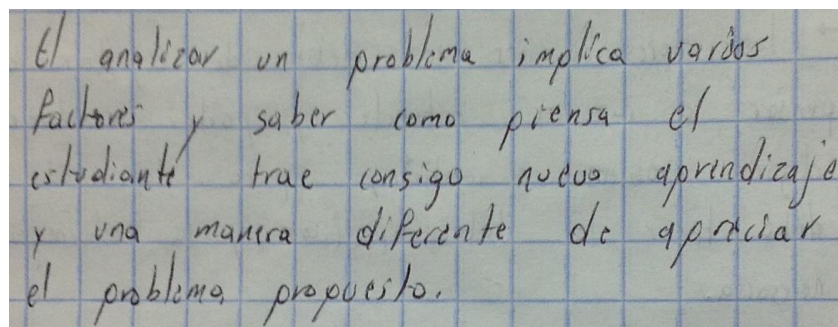 El analizar un problema implica varios
factores y saber como piensa el
estudiante trae consigo nuevo aprendizaje
y una manera diferente de apreciar
el problema propuesto.